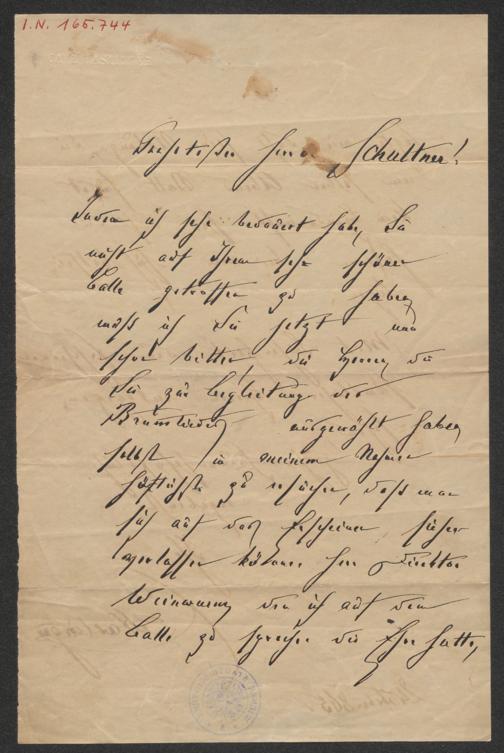 I.N. 166.744
Geehrtester Herr Schultner!
Indem ich sehr bedauert habe, Sie
nicht auf Ihrem sehr schönen
Balle getroffen zu haben,
muß ich Sie jetzt nun
schon bitten, die Herren, die
Sie zur Begleitung der
ausgewählt haben,
selbst in meinem Namen
höflichst zu ersuchen, daß man
sich auf das Erscheinen sicher
verlassen könne. Herr Direktor
Weinwurm, den ich auf dem
Balle zu sprechen die Ehre hatte,